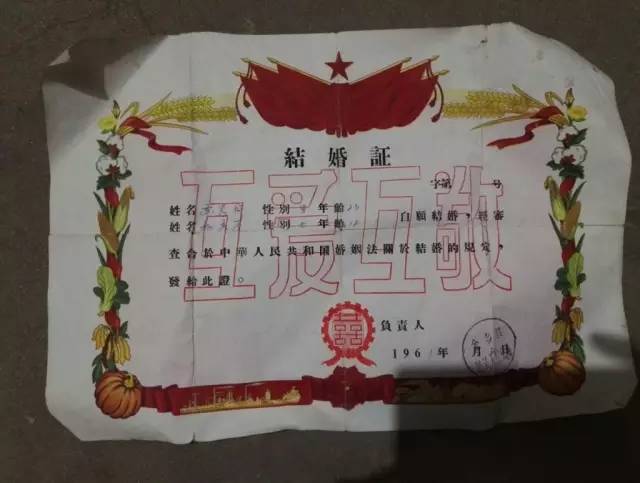 結婚証
互爱互敬
字第 号
姓名 性别 年齡
姓名 性别 年齡 自願結婚，經審
查合於中華人民共和国婚姻法關於結婚的規定，
發給此證。
囍
負責人
196 年 月 日